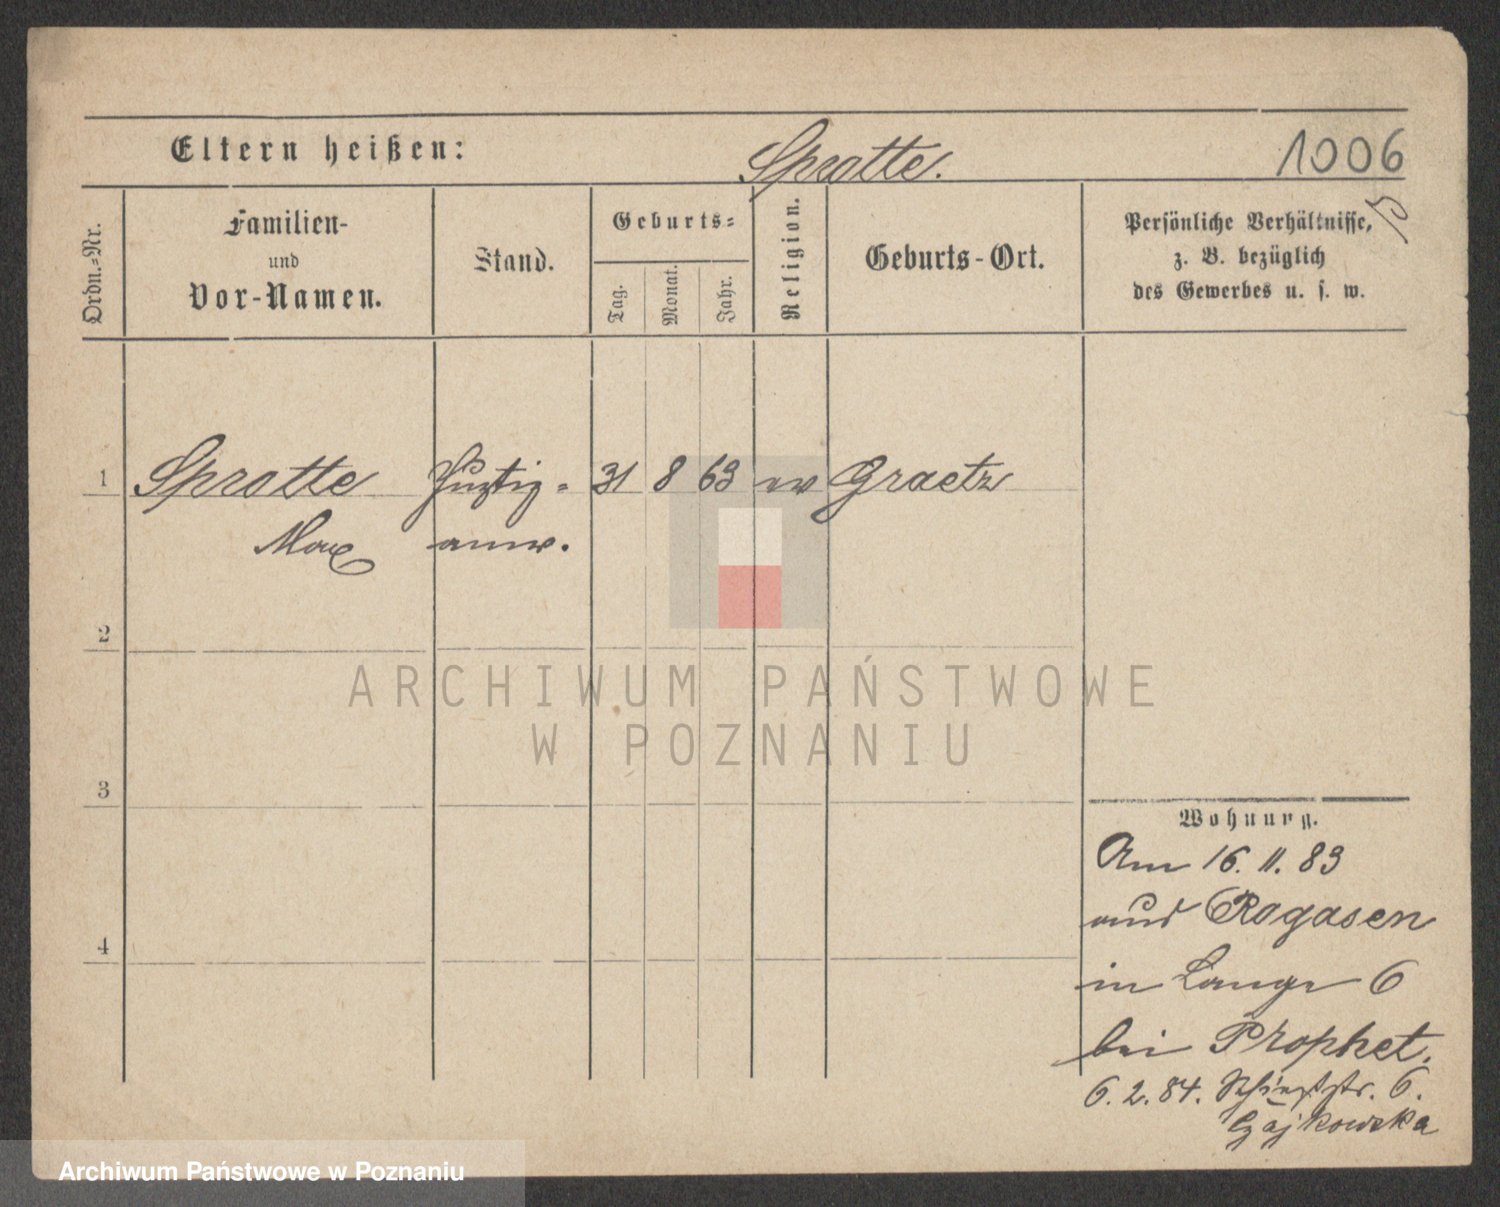 Eltern heißen: Sprotte. 1006
Ordn.-Nr.
Familien-
und
Vor-Namen.
Stand.
Geburts-
Tag.
Monat.
Jahr.
Religion.
Geburts-Ort.
Persönliche Verhältnisse,
z. B. bezüglich
des Gewerbes u. s. w.
1 Sprotte 31 8 63 ev Graetz
Max anw.
2
ARCHIWUM PAŃSTWOWE
W POZNANIU
3
Wohnung.
Am 16. 11. 83
aus Rogasen
in Lange 6
4
bei Prophet.
6. 2. 84. 6.
Czajkowska
Archiwum Państwowe w Poznaniu